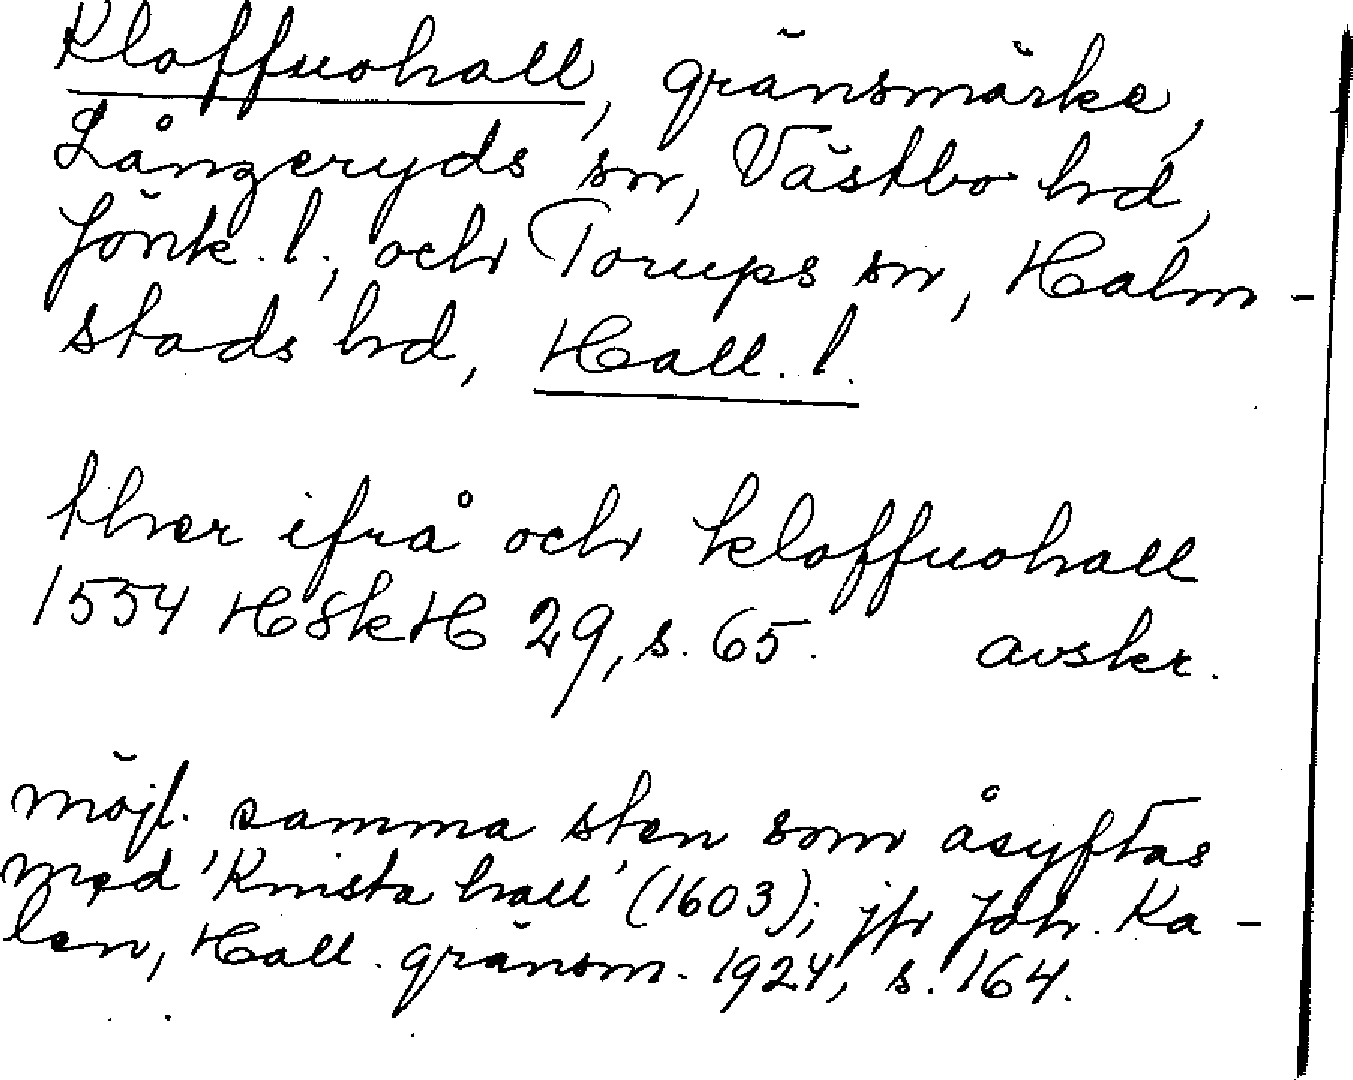 Kloffuohall, gränsmärke,
Långeryds sn, Västbo hd,
Jönk. l., och Torups sn, Halm-
stads hd, Hall. l.
ther ifrå och kloffuohall
1554 HSkH 29, s. 65. avskr.
möjl. samma sten som åsyftas
med 'Knista hall' (1603); jfr Joh. Ka-
lén, Hall. gränsm. 1924, s. 164.